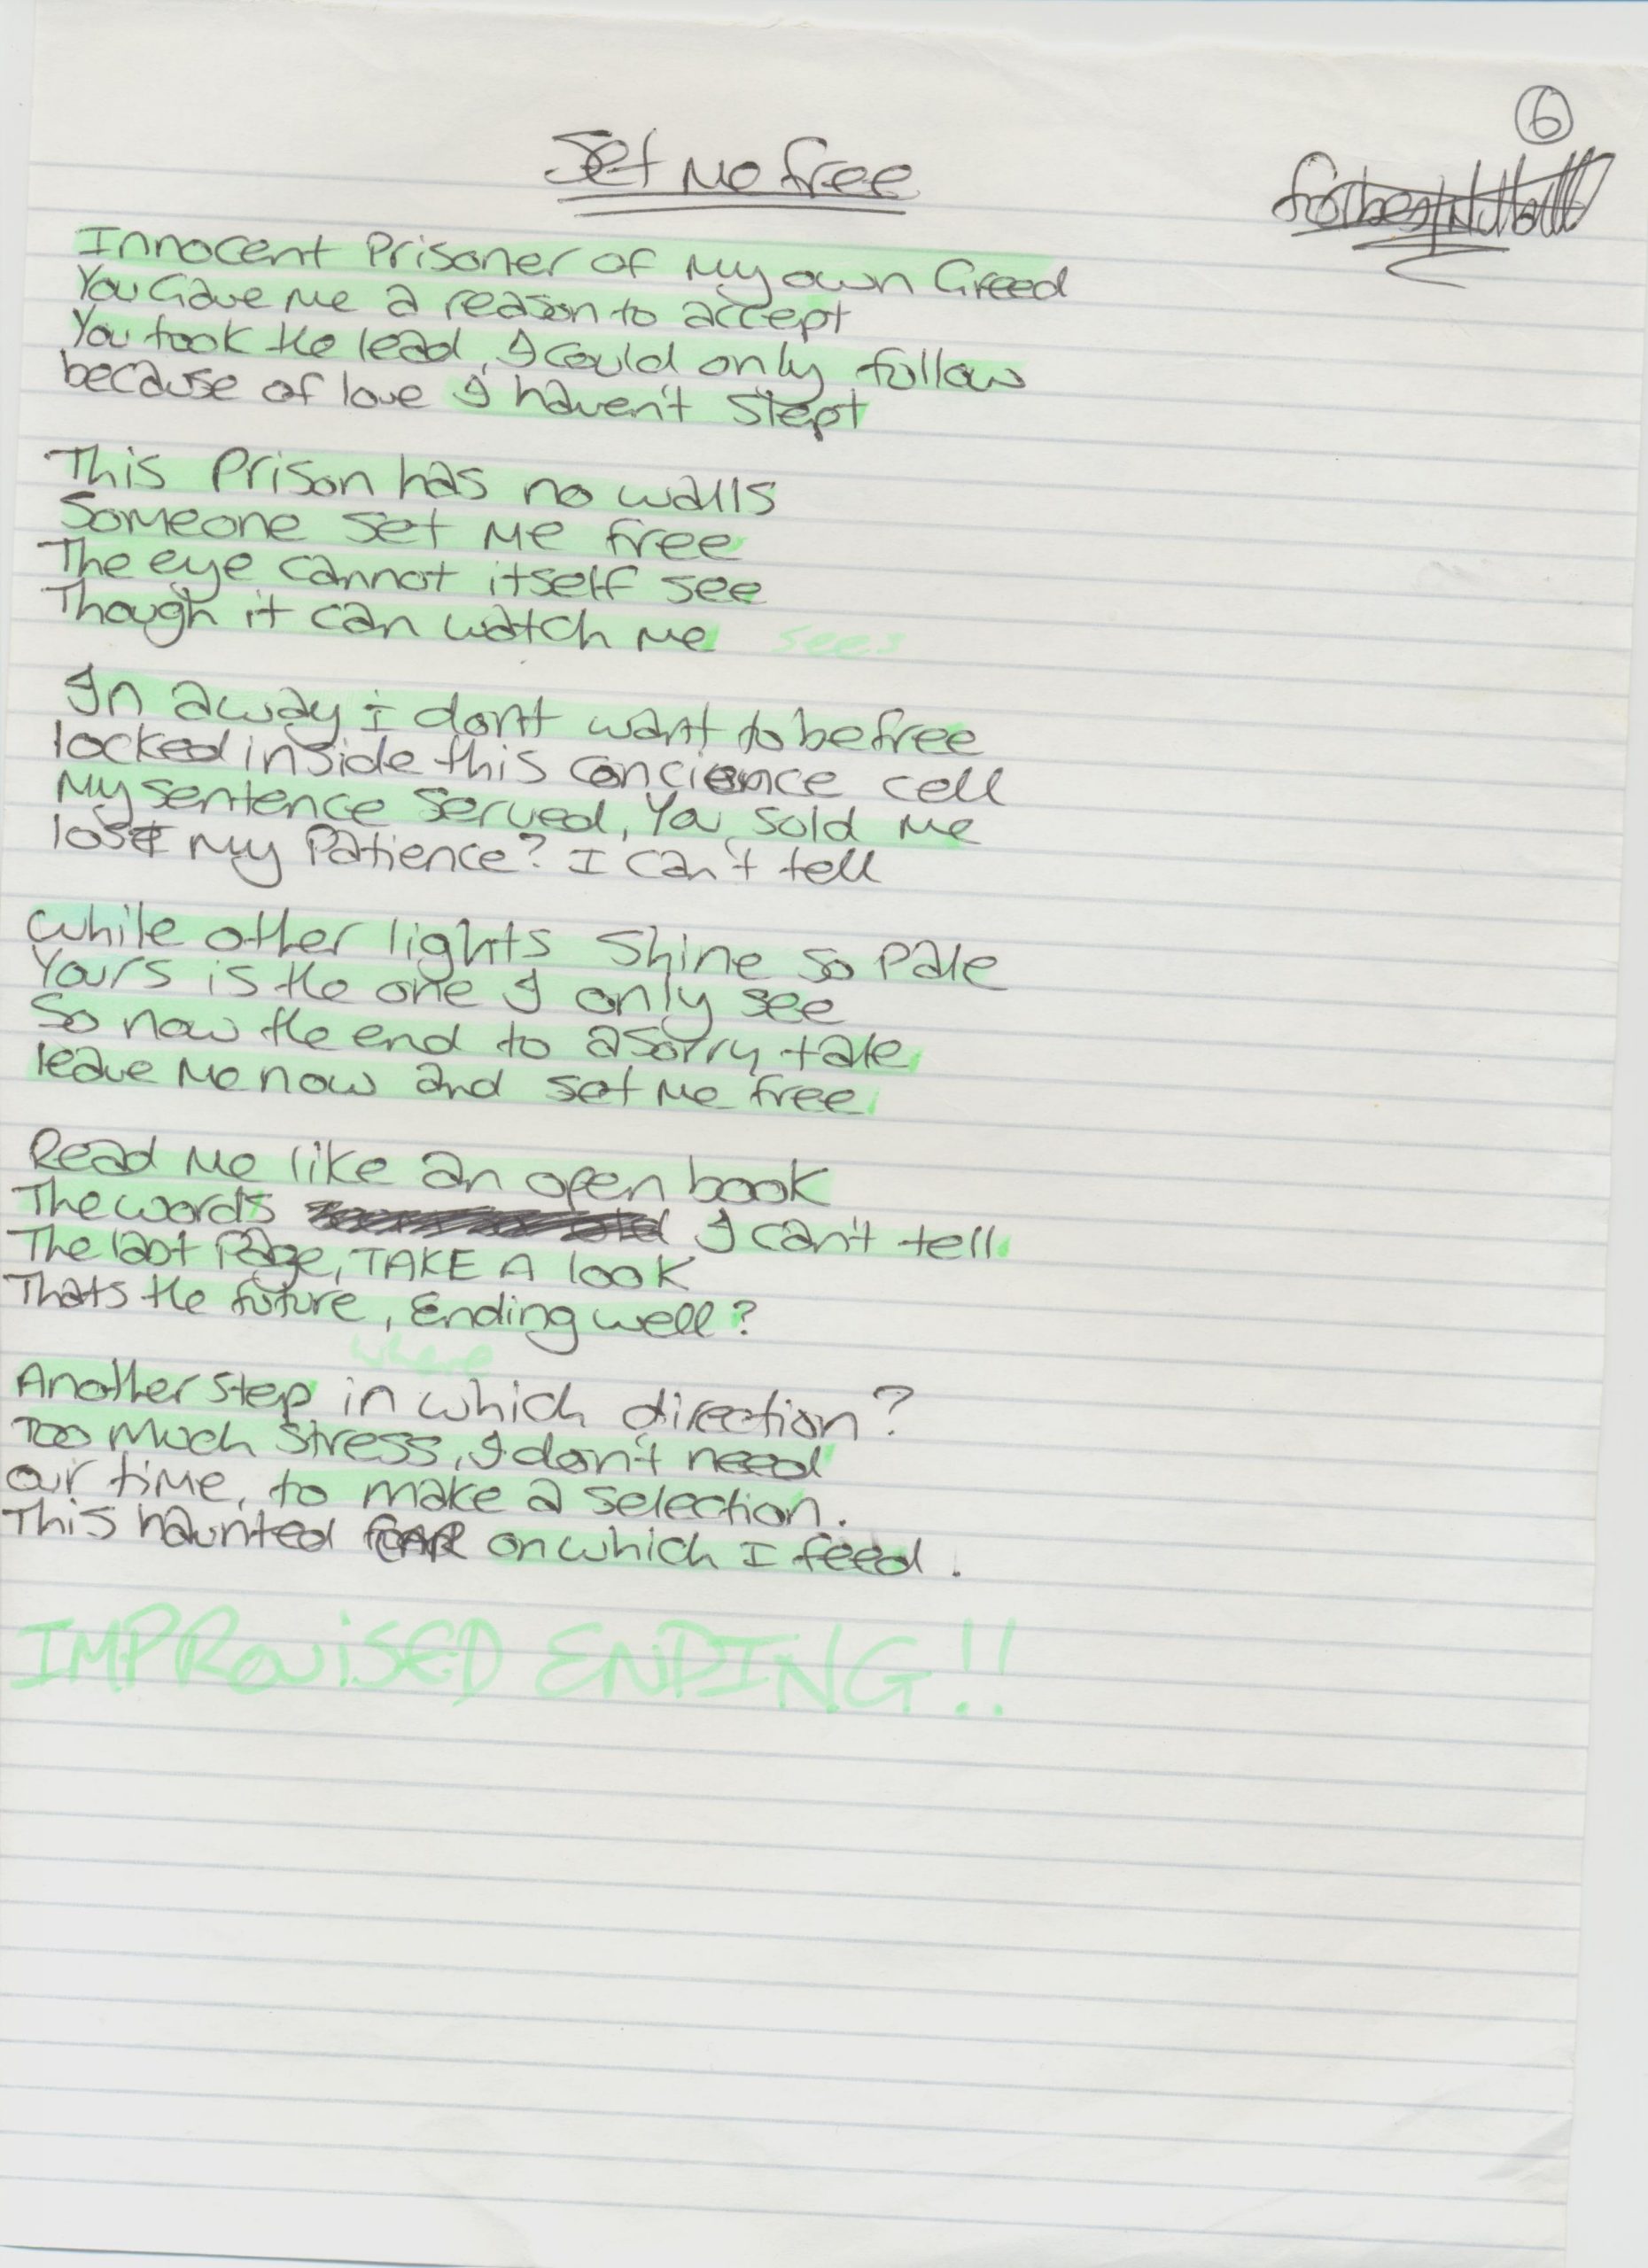 6
Set Me free
Innocent Prisoner of My own Greed
You Gave Me a reason to accept
You took the lead, I could only follow
because of love I haven't Slept
This Prison has no walls
Someone Set Me free
The eye cannot itself see
Though it can watch Me sees
In away i don't want to be free
locked inside this concience cell
My sentence Served, You Sold Me
lost My Patience? I can't tell
While other lights Shine so Pale
Yours is the one I only see
So now the end to a sorry tale
leave Me now and set Me free
Read Me like an open book
The words I can't tell
The last Page, TAKE A look
Thats the future, Ending well?
where
Another step in which direction?
Too Much Stress, I don't need
our time, to make a selection.
This haunted feAR on which I feed.
IMPROviSED ENDING!!